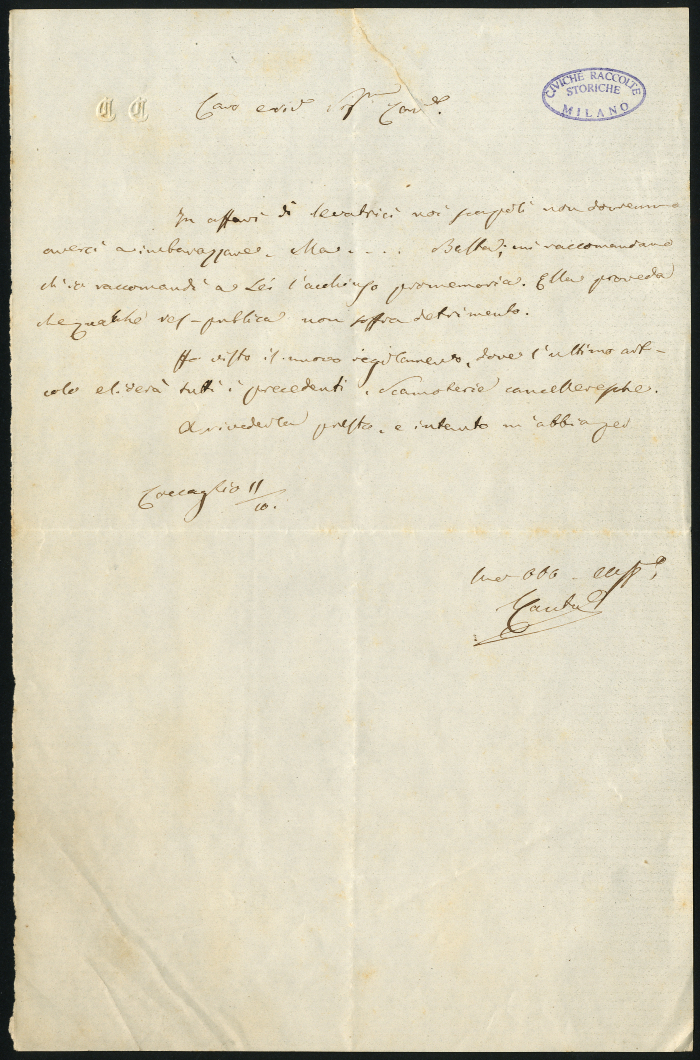 CIVICHE RACCOLTE
STORICHE
MILANO
C C
Caro e riv.
In affari di levatrici noi scapoli non dovremmo
averci a imbarazzare. Ma . . . . Basta; mi raccomandano
ch'io raccomandi a Lei l'acchiuso promemoria. Ella proveda
che qualche res-publica non soffra detrimento.
Ho visto il nuovo regolamento, dove l'ultimo arti-
colo eliderà tutti i precedenti. Scamoterie cancelleresche.
A rivederla presto, e intanto m'abbia per
Coccaglio 11/10.
Suo obb. aff.
Cantù